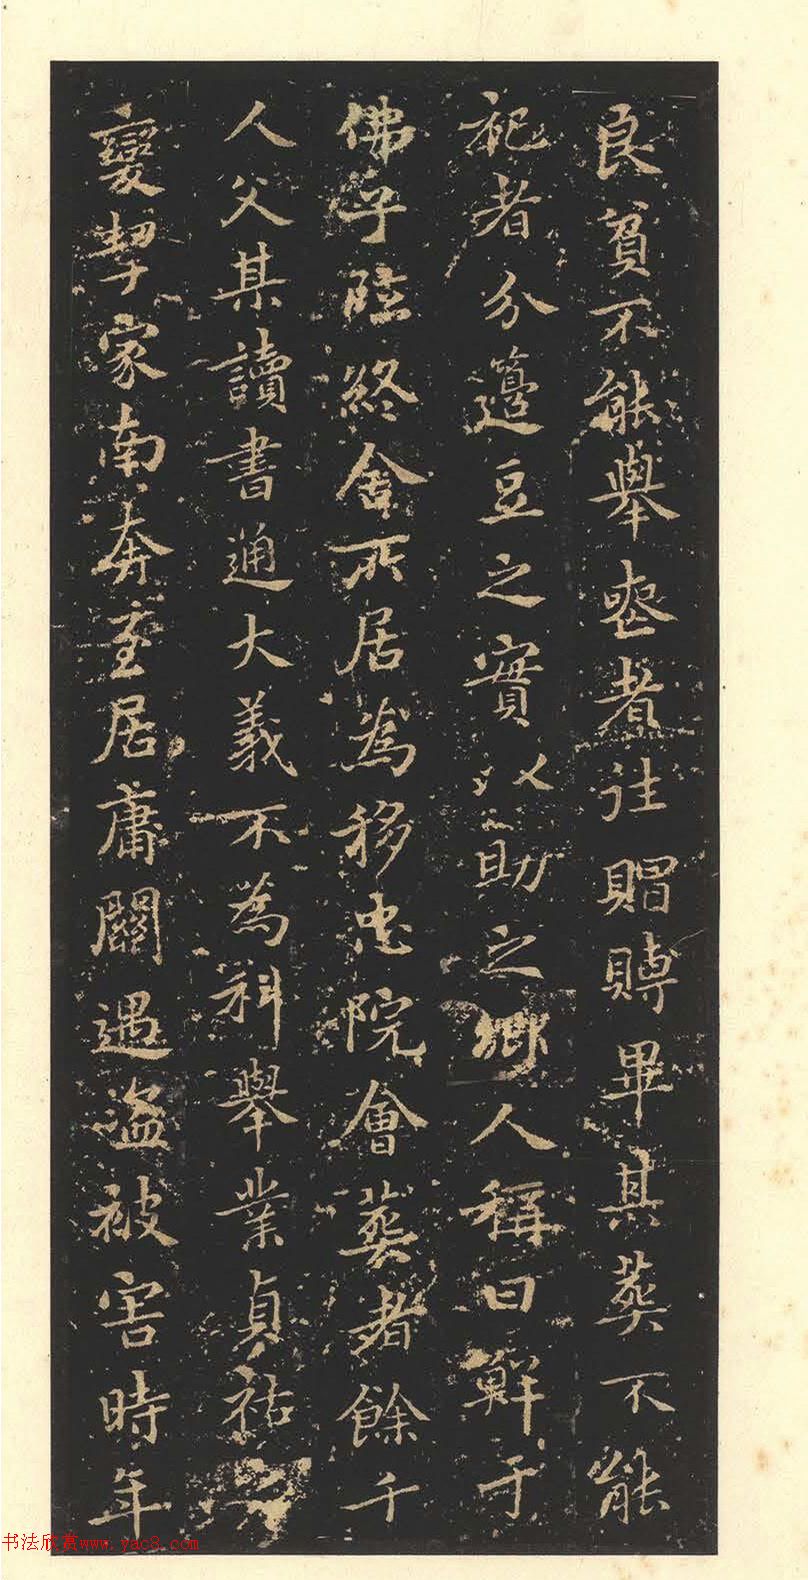 良貧不能舉喪者往賵賻畢其葬不能
祀者分籩豆之實以助之鄉人稱曰鮮于
佛子臨終舍所居為移忠院會葬者餘千
人父某讀書通大義不為科舉業貞祐
變挈家南奔至居庸關遇盜被害時年
书法欣赏www.yac8.com